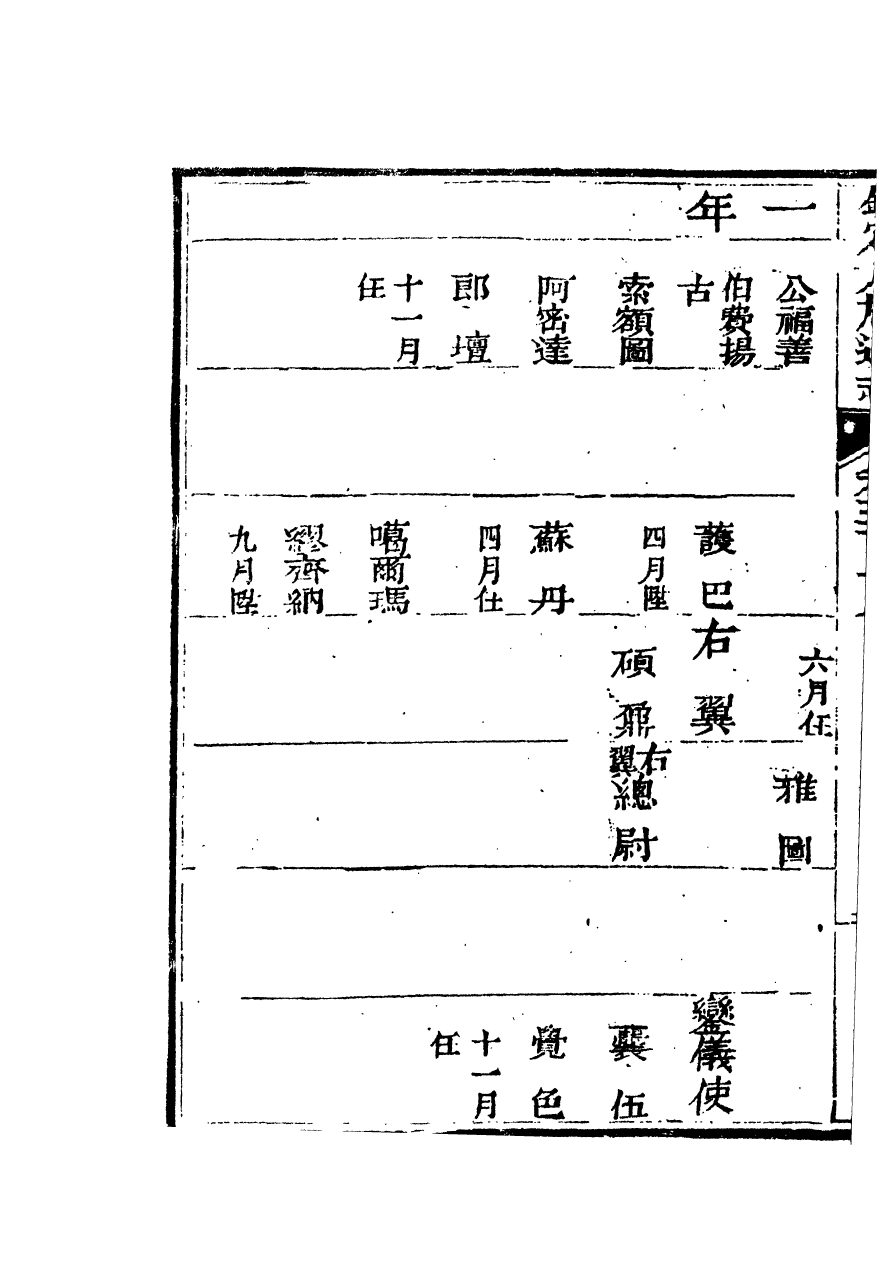 一
年
公福善
伯費揚
古
索額圖
阿密達
郎壇
十一月
任
護巴
四月陞
蘇丹
四月任
噶爾瑪
繆齊納
九月陞
六月任
右翼
碩鼐
雅圖
右翼
總尉
鑾儀使
龔伍
覺色
十一月
任